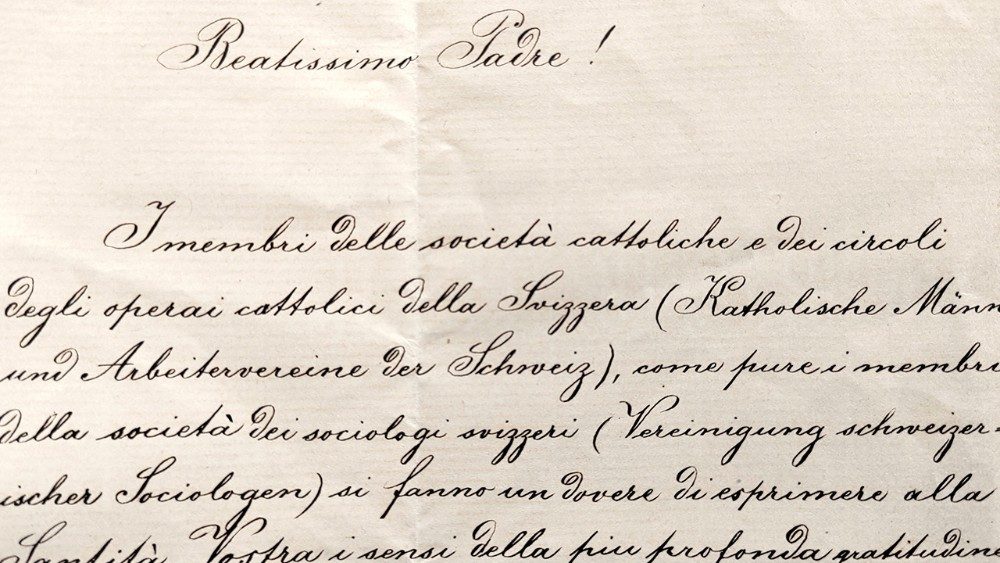 Beatissimo Padre!
I membri delle società cattoliche e dei circoli
degli operai cattolici della Svizzera (Katholische Männ
und Arbeitervereine der Schweiz), come pure i membri
della società dei sociologi svizzeri (Vereinigung schweizer=
ischer Sociologen) si fanno un dovere di esprimere alla
Santità Vostra i sensi della piu profonda gratitudine